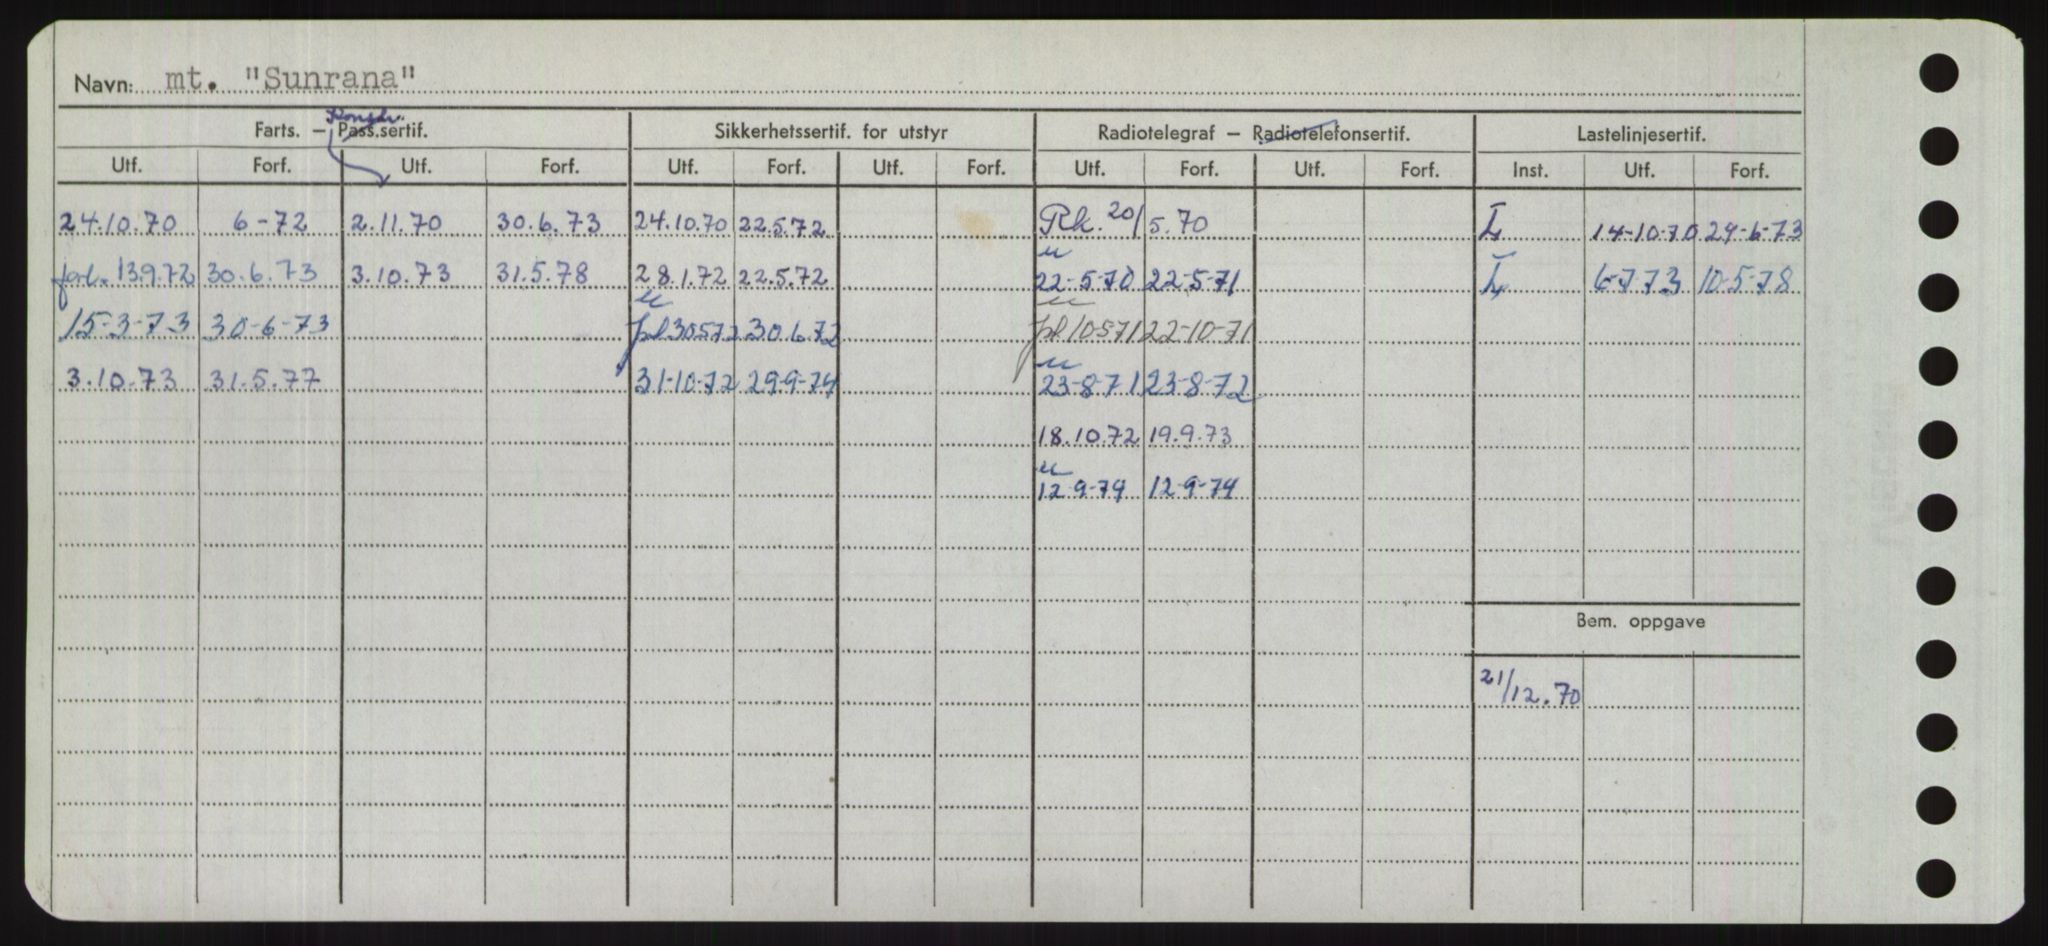 Navn: mt. "Sunrana"
Farts. – Pass.sertif. Konstr. Sikkerhetssertif. for utstyr Radiotelegraf – Radiotelefonsertif. Lastelinjesertif.
Utf. Forf. Utf. Forf. Utf. Forf. Utf. Forf. Utf. Forf. Utf. Forf. Inst. Utf. Forf.
24.10.70 6-72 2.11.70 30.6.73 24.10.70 22.5.72 Rk. 20/5.70 I 14-10-70 29-6-73
forl. 13.9.72 30.6.73 3.10.73 31.5.78 28.1.72 22.5.72 u 22-5-70 22-5-71 I 6-7-73 10-5-78
15-3-73 30-6-73 u fl 30572 30.6.72 fl 10571 22-10-71
3.10.73 31.5.77 31-10-72 29-9-74 u 23-8-71 23-8-72
18.10.72 19.9.73
u 12-9-74 12-9-74
Bem. oppgave
21/12.70